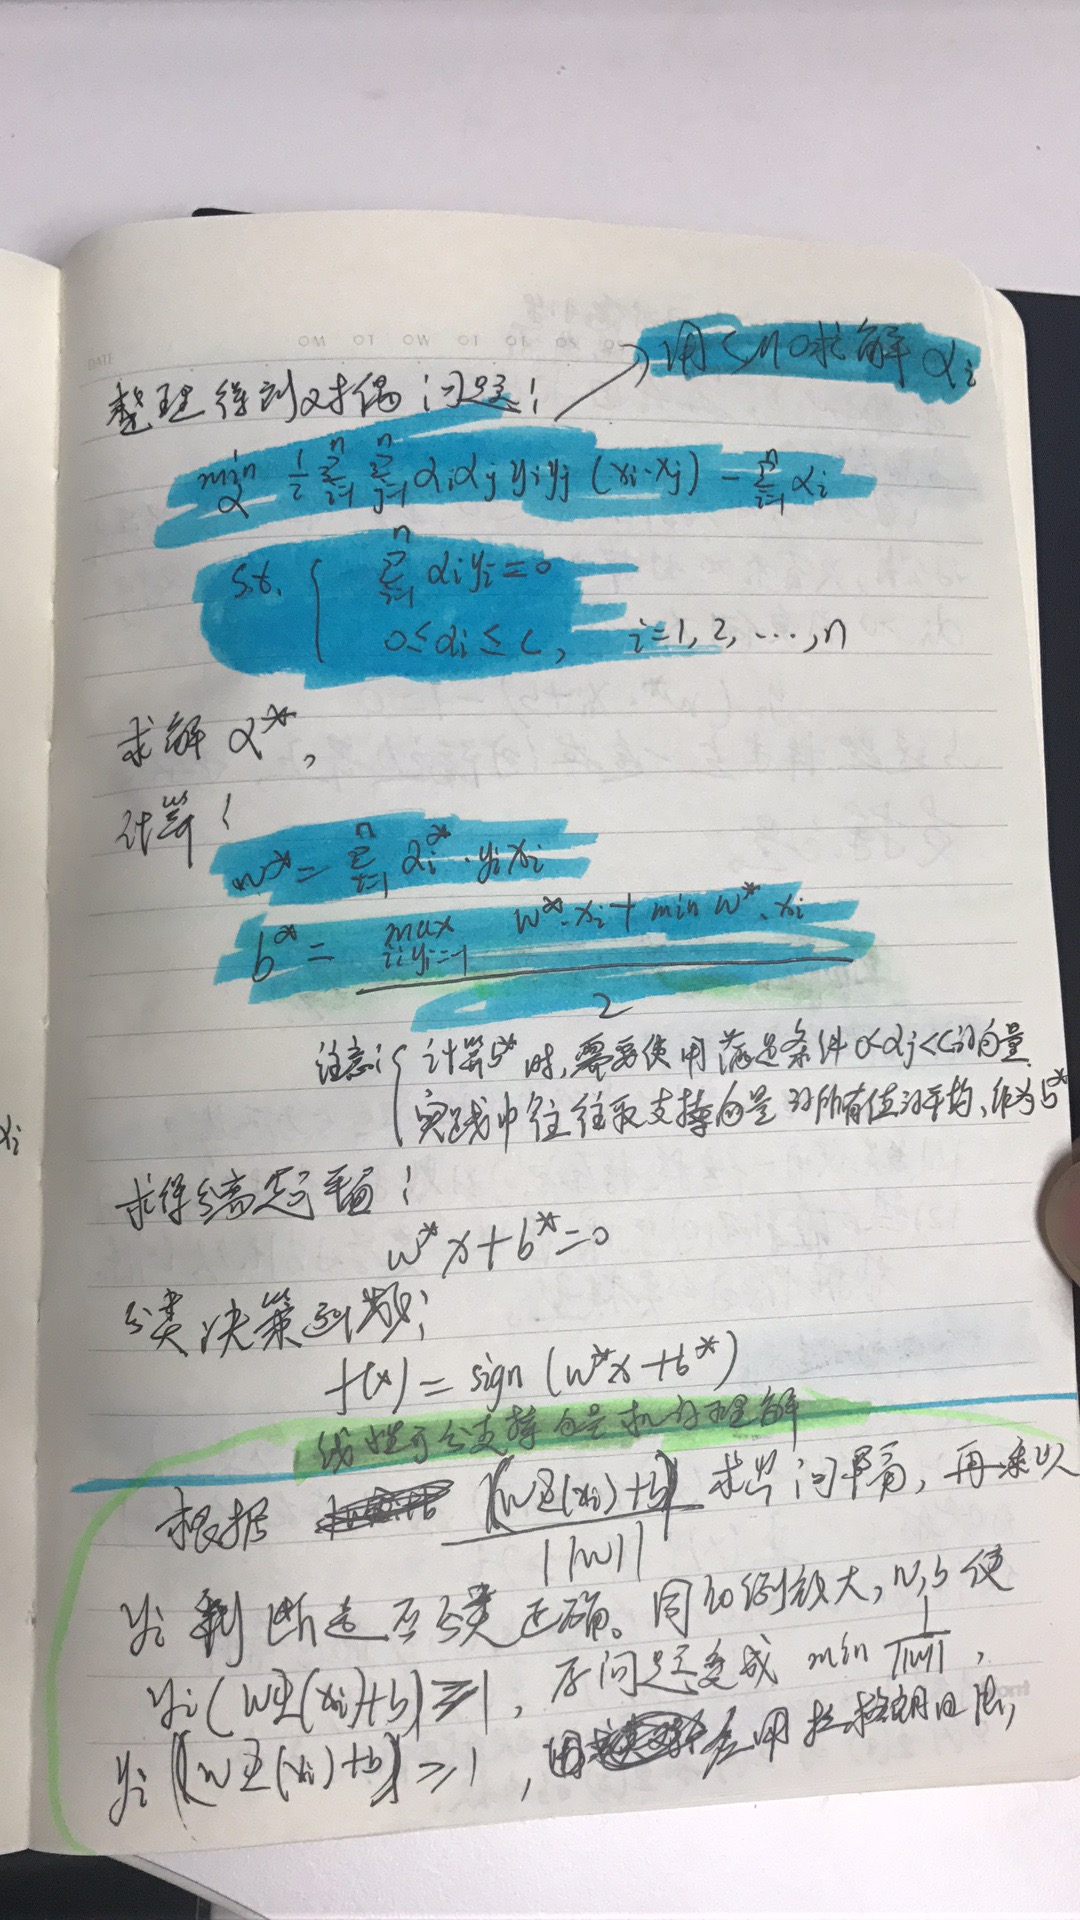 DATE MO TO WO TO
用SMO求解αi
整理得到对偶问题:
min α 1/2 Σ_{i=1}^{n} Σ_{j=1}^{n} αiαjyiyj (xi·xj) - Σ_{i=1}^{n} αi
s.t. { Σ_{i=1}^{n} αiyi=0
0≤αi≤C, i=1,2,...,n
求解α*,
计算:
w* = Σ_{i=1}^{n} αi*·yixi
b* = (max i:yi=-1 w*·xi + min w*·xi) / 2
注意:{ 计算b*时,需要使用满足条件0<αj<C的向量
实践中往往取支持向量的所有值的平均,作为b*
xi
求得分离超平面:
w*x+b*=0
分类决策函数:
f(x) = sign(w*x+b*)
线性可分支持向量机的理解
根据 |(wΦ(xi)+b)| / ||w|| 求出间隔,再乘以
yi判断是否分类正确。同比例放大,w,b使
yi(wΦ(xi)+b)≥1,原问题变成 min 1/||w||,
yi((wΦ(xi)+b)≥1, 用拉格朗日法,